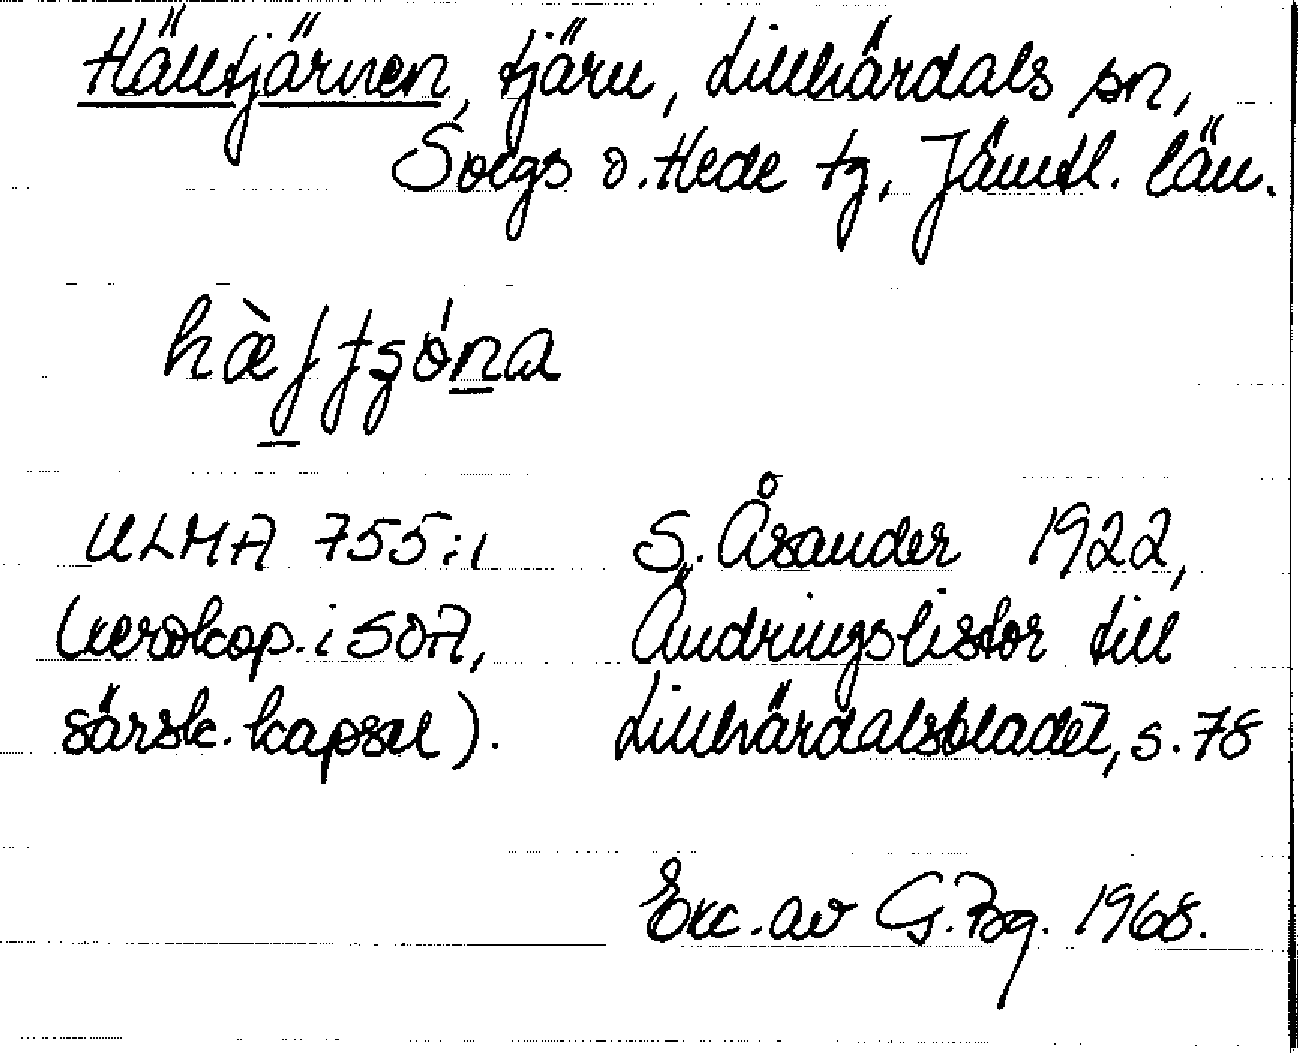 Hälltjärnen, tjärn, Lillhärdals sn,
Svegs o. Hede tg, Jämtl. län.
ULMA 755:1
(xerokop. i SOA,
särsk. kapsel).
S. Åsander 1922,
Ändringslistor till
Lillhärdalsbladet, s. 78
Exc. av G. Bg. 1968.